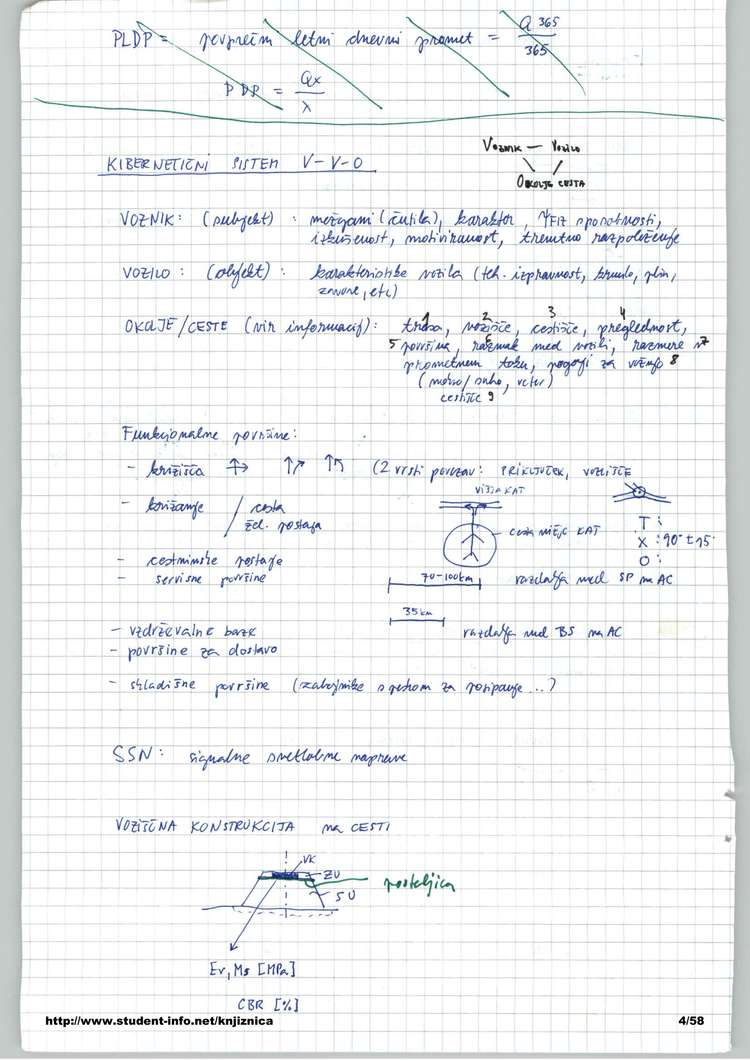 PLDP = povprečni letni dnevni promet = Q 365 / 365
PDP = Qx / λ
KIBERNETIČNI SISTEM V-V-O
VOZNIK — VOZILO
OKOLJE CESTA
VOZNIK: (subjekt) : možgani (čutila), karakter, ΨFIZ sposobnosti,
izkušenost, motiviranost, trenutno razpoloženje
VOZILO: (objekt) : karakteristike vozila (teh. izpravnost, krmilo, plin,
zavore, etc)
OKOLJE/CESTE (vir informacij): 1 trasa, 2 vozišče, 3 cestišče, 4 preglednost,
5 površina, 6 razmak med vozili, razmere v 7
prometnem toku, pogoji za vožnjo 8
(mokro/suho, veter)
cestišče 9
Funkcionalne površine:
- križišča (2 vrsti povezav: PRIKLJUČEK, VOZLIŠČE
VIŠJA KAT
- križanje / cesta
žel. postaja
cesta nižje KAT
T:
X: 90° ± 15°
O:
- cestninske postaje
- servisne površine
70-100km razdalja med SP na AC
35 km
razdalja med BS na AC
- vzdrževalne baze
- površine za dostavo
- skladiščne površine (zabojnike s peskom za posipanje ...)
SSN: signalne svetlobne naprave
VOZIŠČNA KONSTRUKCIJA na CESTI
VK
ZU
SU
posteljica
Ev, Ms [MPa]
CBR [%]
http://www.student-info.net/knjiznica
4/58